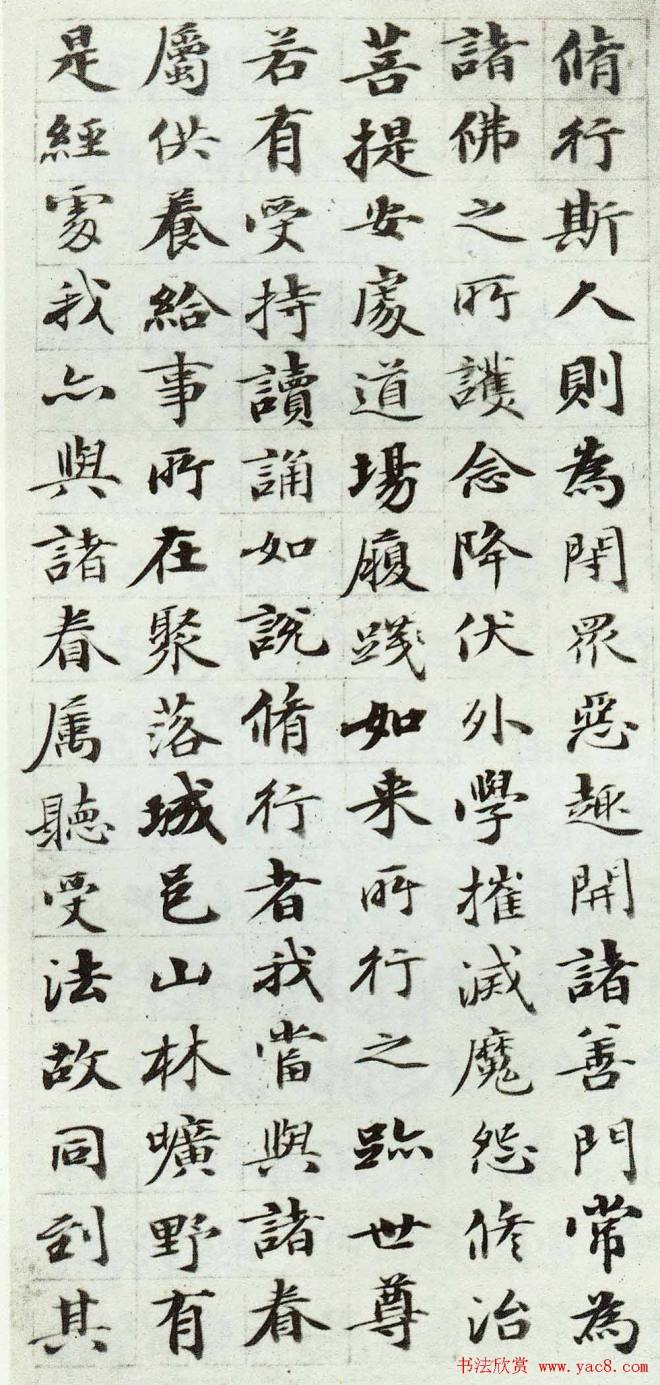 脩行斯人則為閇眾惡趣開諸善門常為
諸佛之所護念降伏外學摧滅魔怨修治
菩提安處道場履踐如来所行之跡世尊
若有受持讀誦如說脩行者我當與諸眷
屬供養給事所在聚落城邑山林曠野有
是經處我亦與諸眷属聽受法故同到其
书法欣赏 www.yac8.com